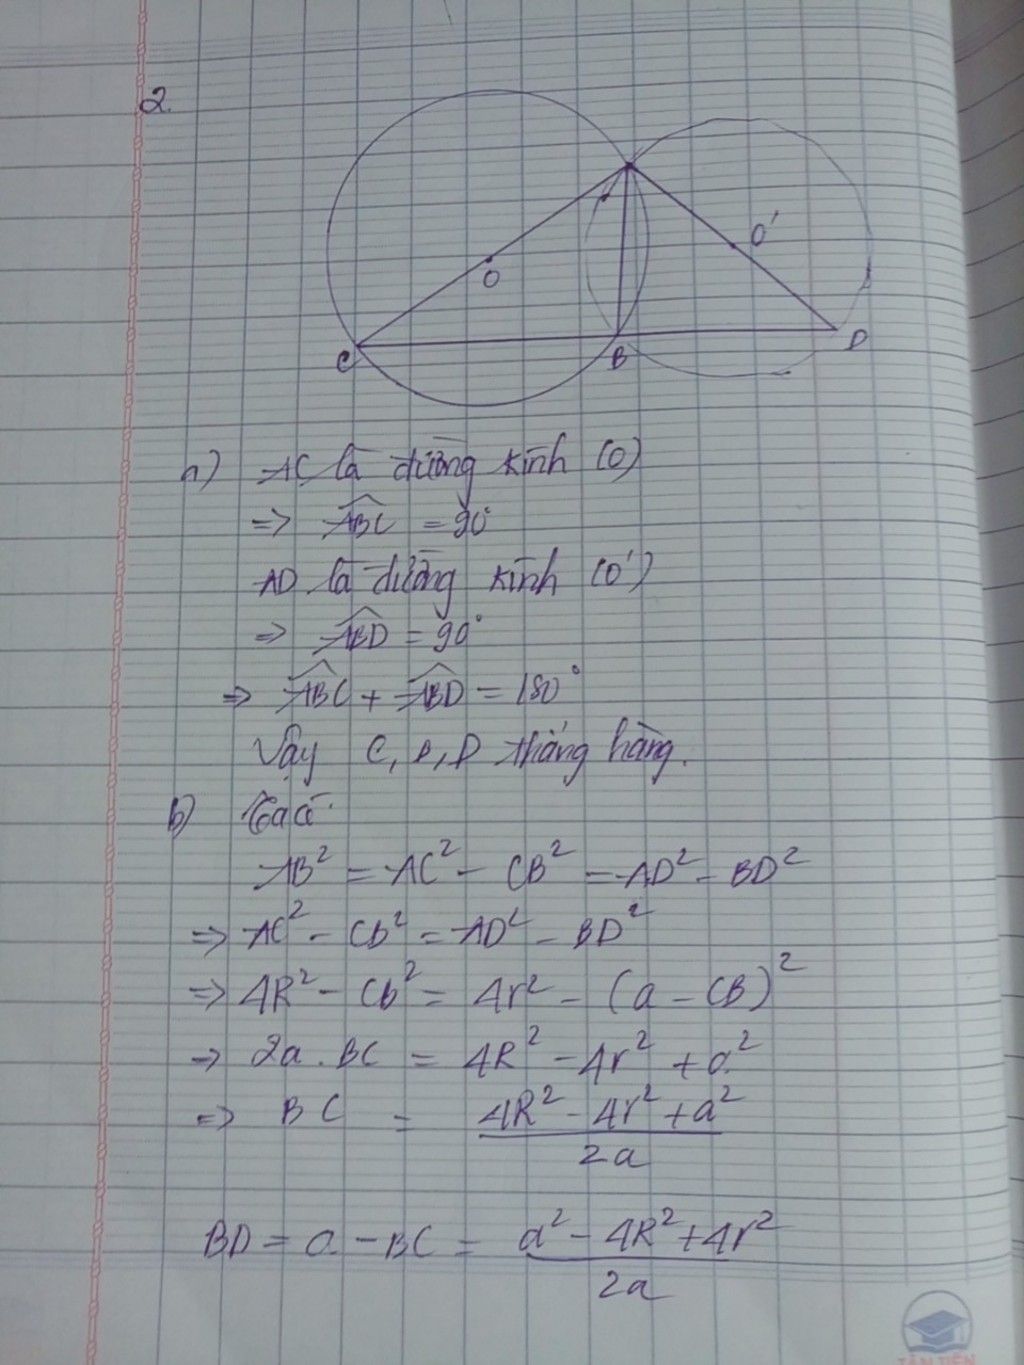 2.
O
O'
C
B
D
a) AC là đường kính (O)
=> ABC = 90°
AD là đường kính (O')
=> ABD = 90°
=> ABC + ABD = 180°
Vậy C, B, D thẳng hàng.
b) Ta có
AB² = AC² - CB² = AD² - BD²
=> AC² - Cb² = AD² - BD²
=> 4R² - Cb² = 4r² - (a - CB)²
=> 2a . BC = 4R² - 4r² + a²
=> BC = 4R² - 4r² + a²
2a
BD = a - BC = a² - 4R² + 4r²
2a
TÂN TIẾN